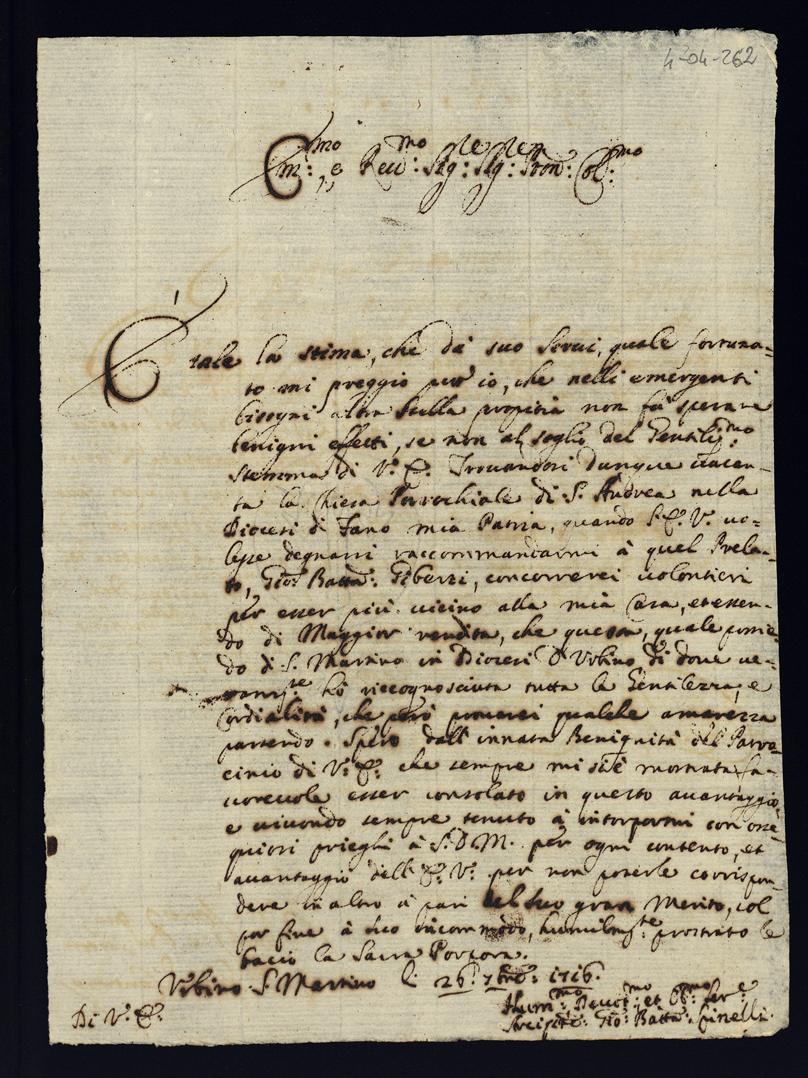 4-04-262
Em:mo e Reu:mo Sig:re Sig:re Pron: Col:mo
È tale la stima, che di suo Serui, quale fortuna=
to mi preggio però io, che nelli emergenti
bisogni altra Stella propitia non fà sperare
benigni effetti, se non al soglio del Gentili:mo
Stemma di V: E: Trouandosi dunque uacan-
te la Chiesa Parrochiale di S: Andrea nella
Diocesi di Fano mia Patria, quando S: E: V: uo=
lesse degnarsi raccommandarmi à quel Prela=
to, Gio: Batta: Giberti, concorrerei uolontieri
per esser più uicino alla mia Casa, et essen-
do di Maggior rendita, che questa, quale possie=
do di S: Martino in Diocesi d'Vrbino, di doue ue=
ram:te hò riccognosciuta tutta la Gentilezza, e
Cordialità, che però prouerei qualche amarezza
partendo. Spero dall'innata Benignità del Patro=
cinio di V: E: che sempre mi si è mostrata fa=
uoreuole esser consolato in questo auantaggio,
e uiuendo sempre tenuto à interpormi con osse=
quiosi prieghi à S. D. M. per ogni contento, et
auantaggio dell'E: V: per non poterle corrispon=
dere in altro à pari del suo gran Merito, col
por fine à suo incommodo, humilm:te prostrato le
bacio la Sacra Porpora.
Vrbino S. Martino li 26: 7bre: 1716.
Di V: E:
Hum:mo Deuot:mo et Obl:mo Ser:e
Arcip:te Gio: Batta: Cinelli